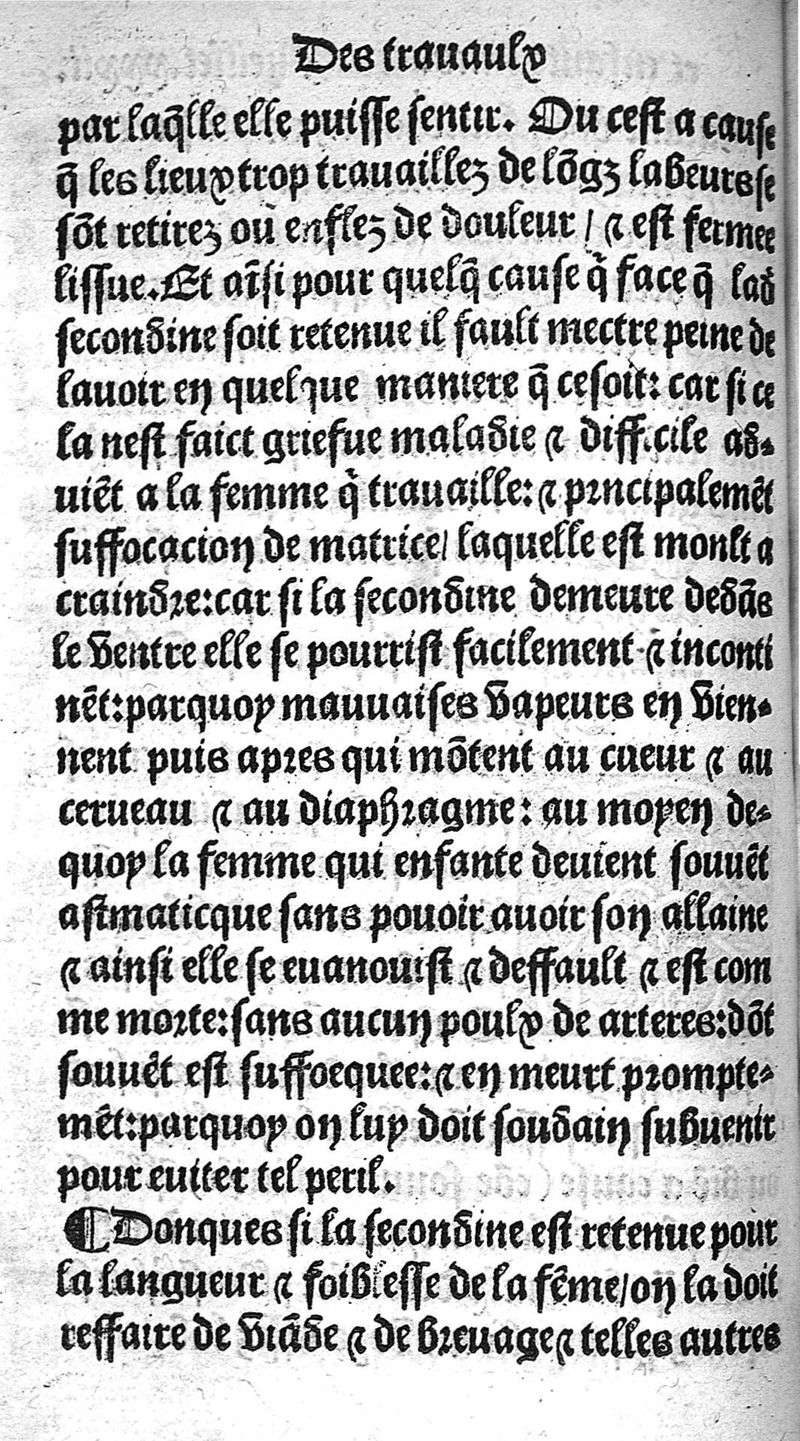 Des trauaulx
par laq̃lle elle puisse sentir. Ou cest a cause
q̃ les lieux trop trauaillez de lõgz labeurs se
sõt retirez ou enflez de douleur / ⁊ est fermee
lissue. Et aĩsi pour quelq̃ cause q̃ face q̃ lad̃
secondine soit retenue il fault mectre peine de
lauoir en quelque maniere q̃ ce soit: car si ce
la nest faict griefue maladie ⁊ difficile ad⸗
uiẽt a la femme q̃ trauaille: ⁊ principalemẽt
suffocacion de matrice / laquelle est monlt a
craindre: car si la secondine demeure dedãs
le ventre elle se pourrist facilement ⁊ inconti
nẽt: parquoy mauuaises vapeurs en vien⸗
nent puis apres qui mõtent au cueur ⁊ au
cerueau ⁊ au diaphragme: au moyen de⸗
quoy la femme qui enfante deuient souuẽt
astmaticque sans pouoir auoir son allaine
⁊ ainsi elle se euanouist ⁊ deffault ⁊ est com
me morte: sans aucun poulx de arteres: dõt
souuẽt est suffoequee: ⁊ en meurt prompte⸗
mẽt: parquoy on luy doit soudain subuenir
pour euiter tel peril.
¶ Donques si la secondine est retenue pour
la langueur ⁊ foiblesse de la fẽme / on la doit
reffaire de viãde ⁊ de breuage ⁊ telles autres